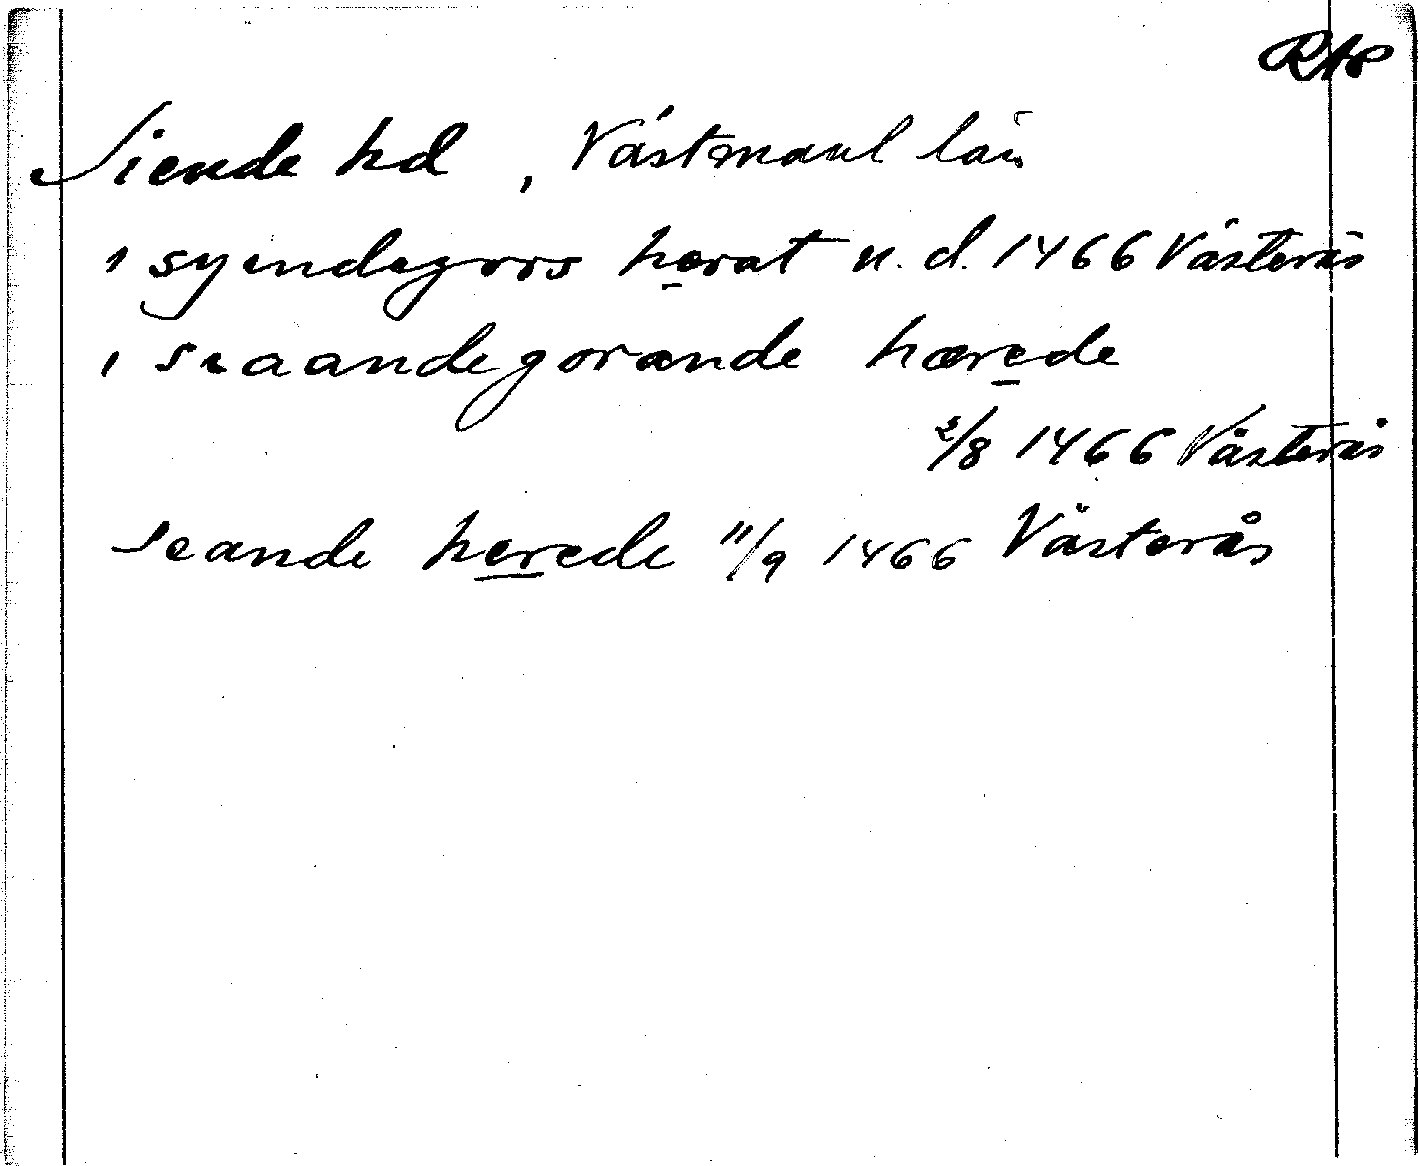 RAP
Siende hd, Västmanl län
i syendegors hærat u. d. 1466 Västerås
i siaandegorande hærede
2/8 1466 Västerås
seande herede 11/9 1466 Västerås